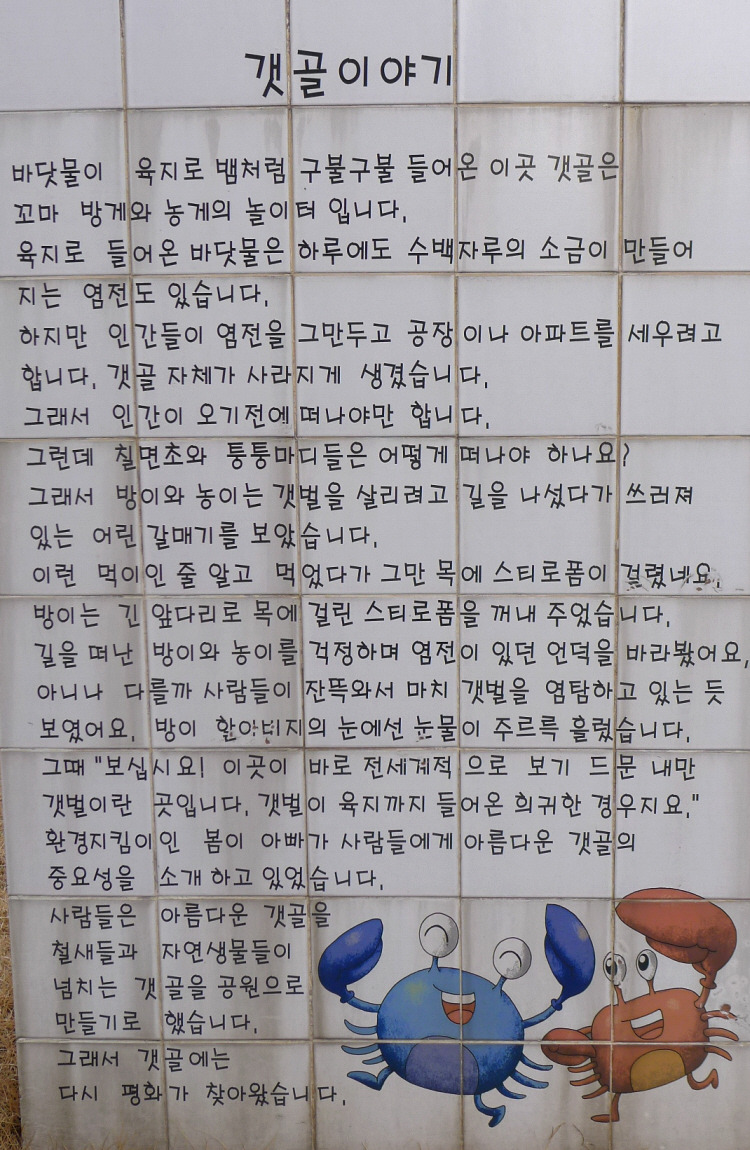 갯골이야기
바닷물이 육지로 뱀처럼 구불구불 들어온 이곳 갯골은
꼬마 방게와 농게의 놀이터 입니다.
육지로 들어온 바닷물은 하루에도 수백자루의 소금이 만들어
지는 염전도 있습니다.
하지만 인간들이 염전을 그만두고 공장이나 아파트를 세우려고
합니다. 갯골 자체가 사라지게 생겼습니다.
그래서 인간이 오기전에 떠나야만 합니다.
그런데 칠면초와 퉁퉁마디들은 어떻게 떠나야 하나요?
그래서 방이와 농이는 갯벌을 살리려고 길을 나섰다가 쓰러져
있는 어린 갈매기를 보았습니다.
이런 먹이인 줄 알고 먹었다가 그만 목에 스티로폼이 걸렸네요.
방이는 긴 앞다리로 목에 걸린 스티로폼을 꺼내 주었습니다.
길을 떠난 방이와 농이를 걱정하며 염전이 있던 언덕을 바라봤어요,
아니나 다를까 사람들이 잔뜩와서 마치 갯벌을 염탐하고 있는 듯
보였어요. 방이 할아버지의 눈에선 눈물이 주르륵 흘렀습니다.
그때 "보십시요! 이곳이 바로 전세계적으로 보기 드문 내만
갯벌이란 곳입니다. 갯벌이 육지까지 들어온 희귀한 경우지요."
환경지킴이인 봄이 아빠가 사람들에게 아름다운 갯골의
중요성을 소개 하고 있었습니다.
사람들은 아름다운 갯골을
철새들과 자연생물들이
넘치는 갯골을 공원으로
만들기로 했습니다.
그래서 갯골에는
다시 평화가 찾아왔습니다.